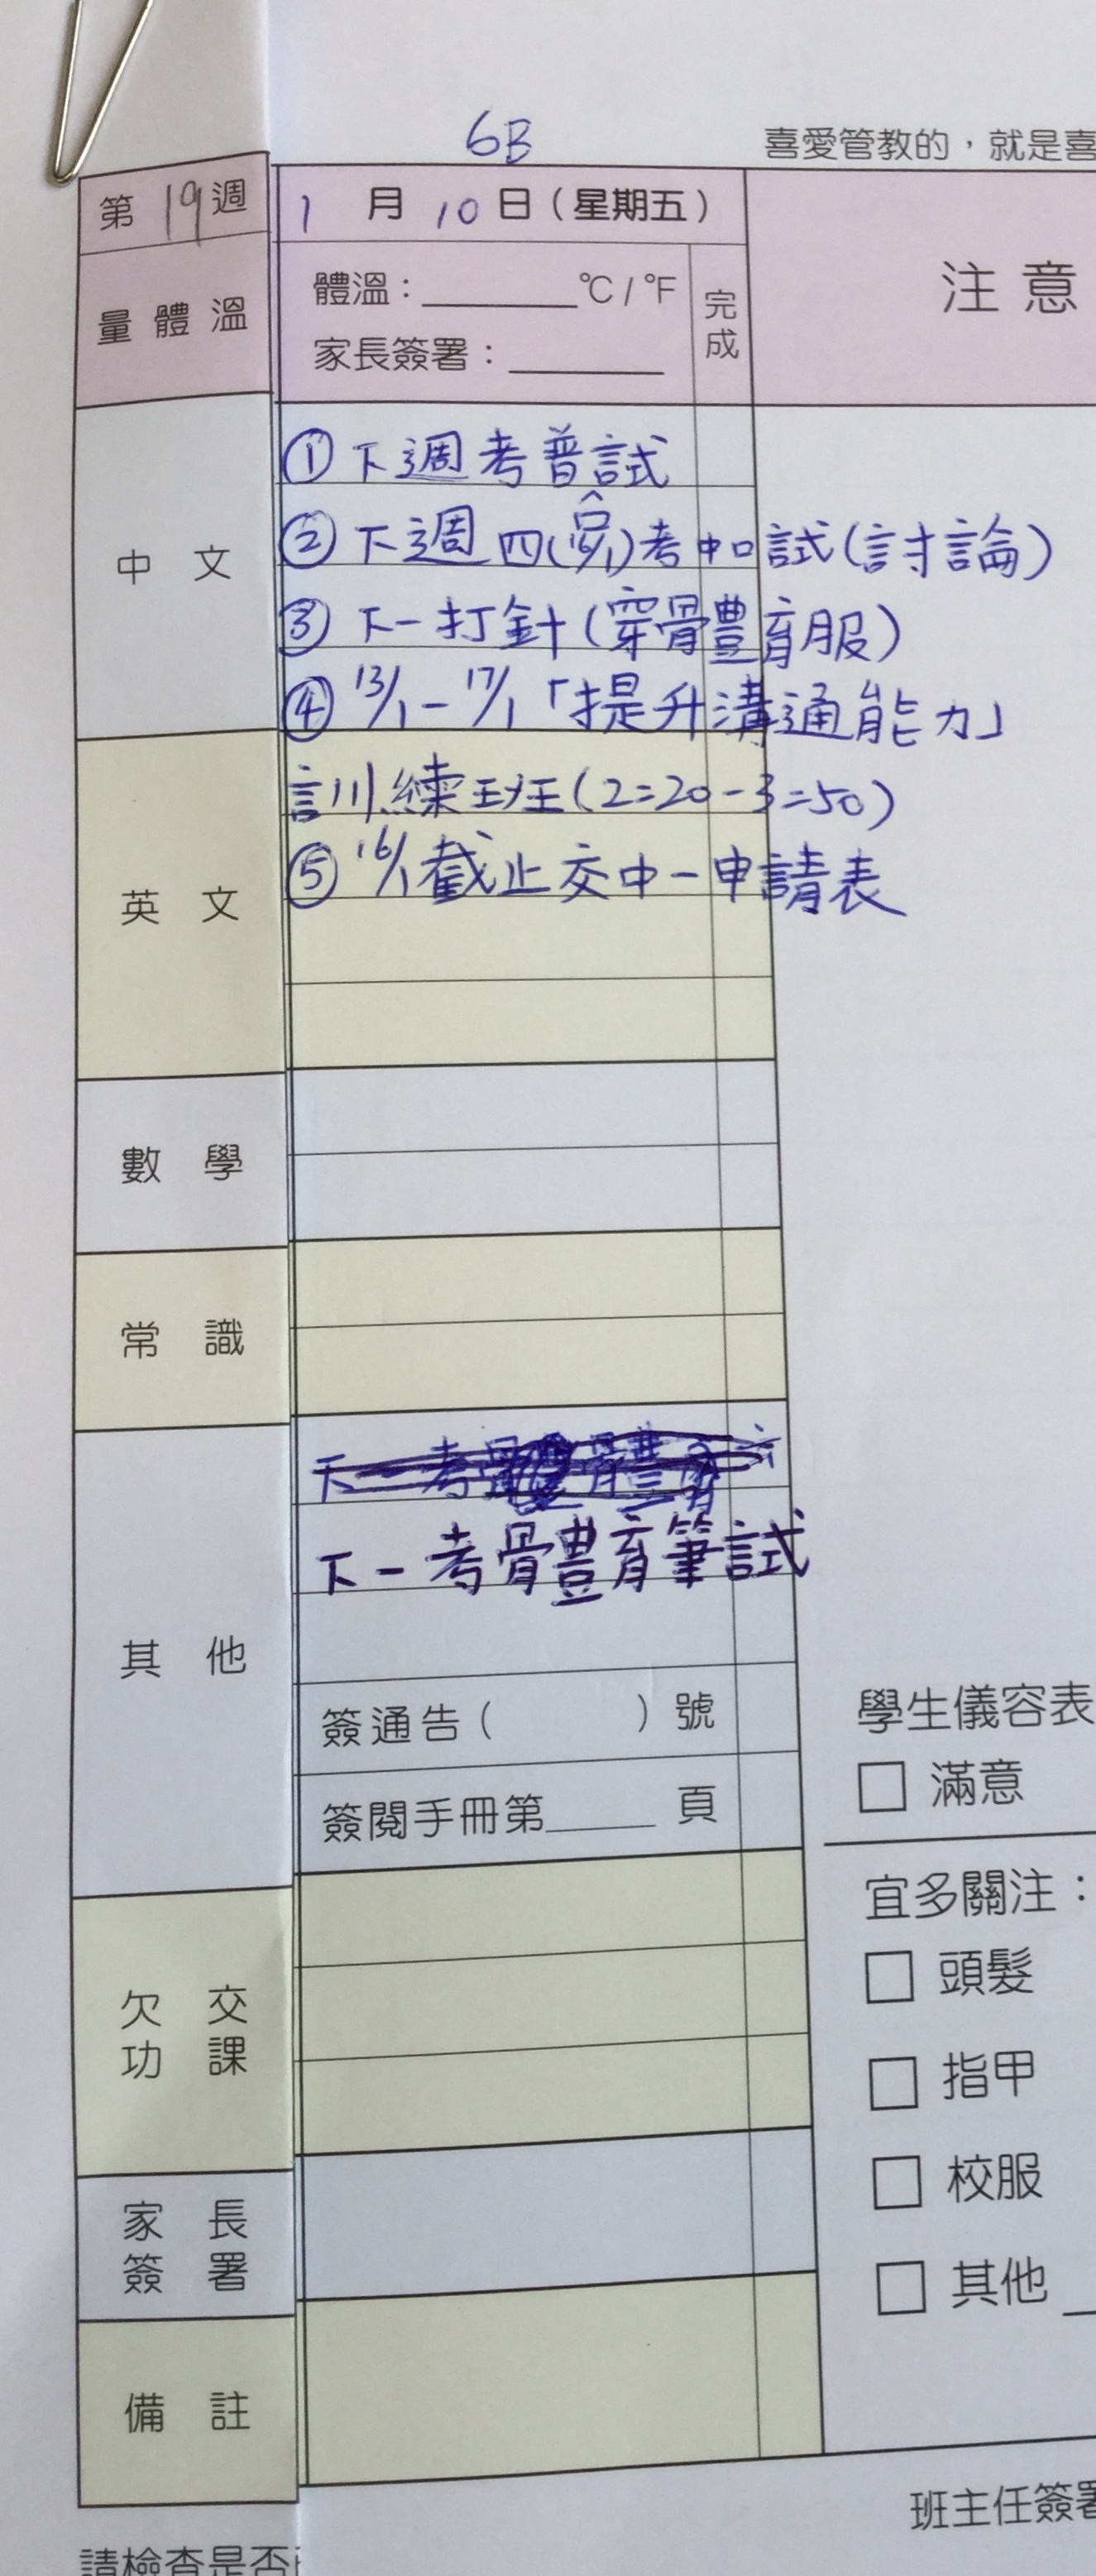 6B
喜愛管教的，就是喜
第19週
1月10日(星期五)
量體溫
體溫：________°C / °F
家長簽署：________
完成
注意
中文
① 下週考普試
② 下週四()考中口試(討論)
③ 下一打針(穿體育服)
④ 13/1 - 17/1「提升溝通能力」
訓練班(2=20-3=50)
⑤ 16/1截止交中一申請表
英文
數學
常識
其他
下一考體育筆試
簽通告( )號
簽閱手冊第______頁
欠交功課
家長簽署
備註
學生儀容表
□ 滿意
宜多關注：
□ 頭髮
□ 指甲
□ 校服
□ 其他
班主任簽署
請檢查是否